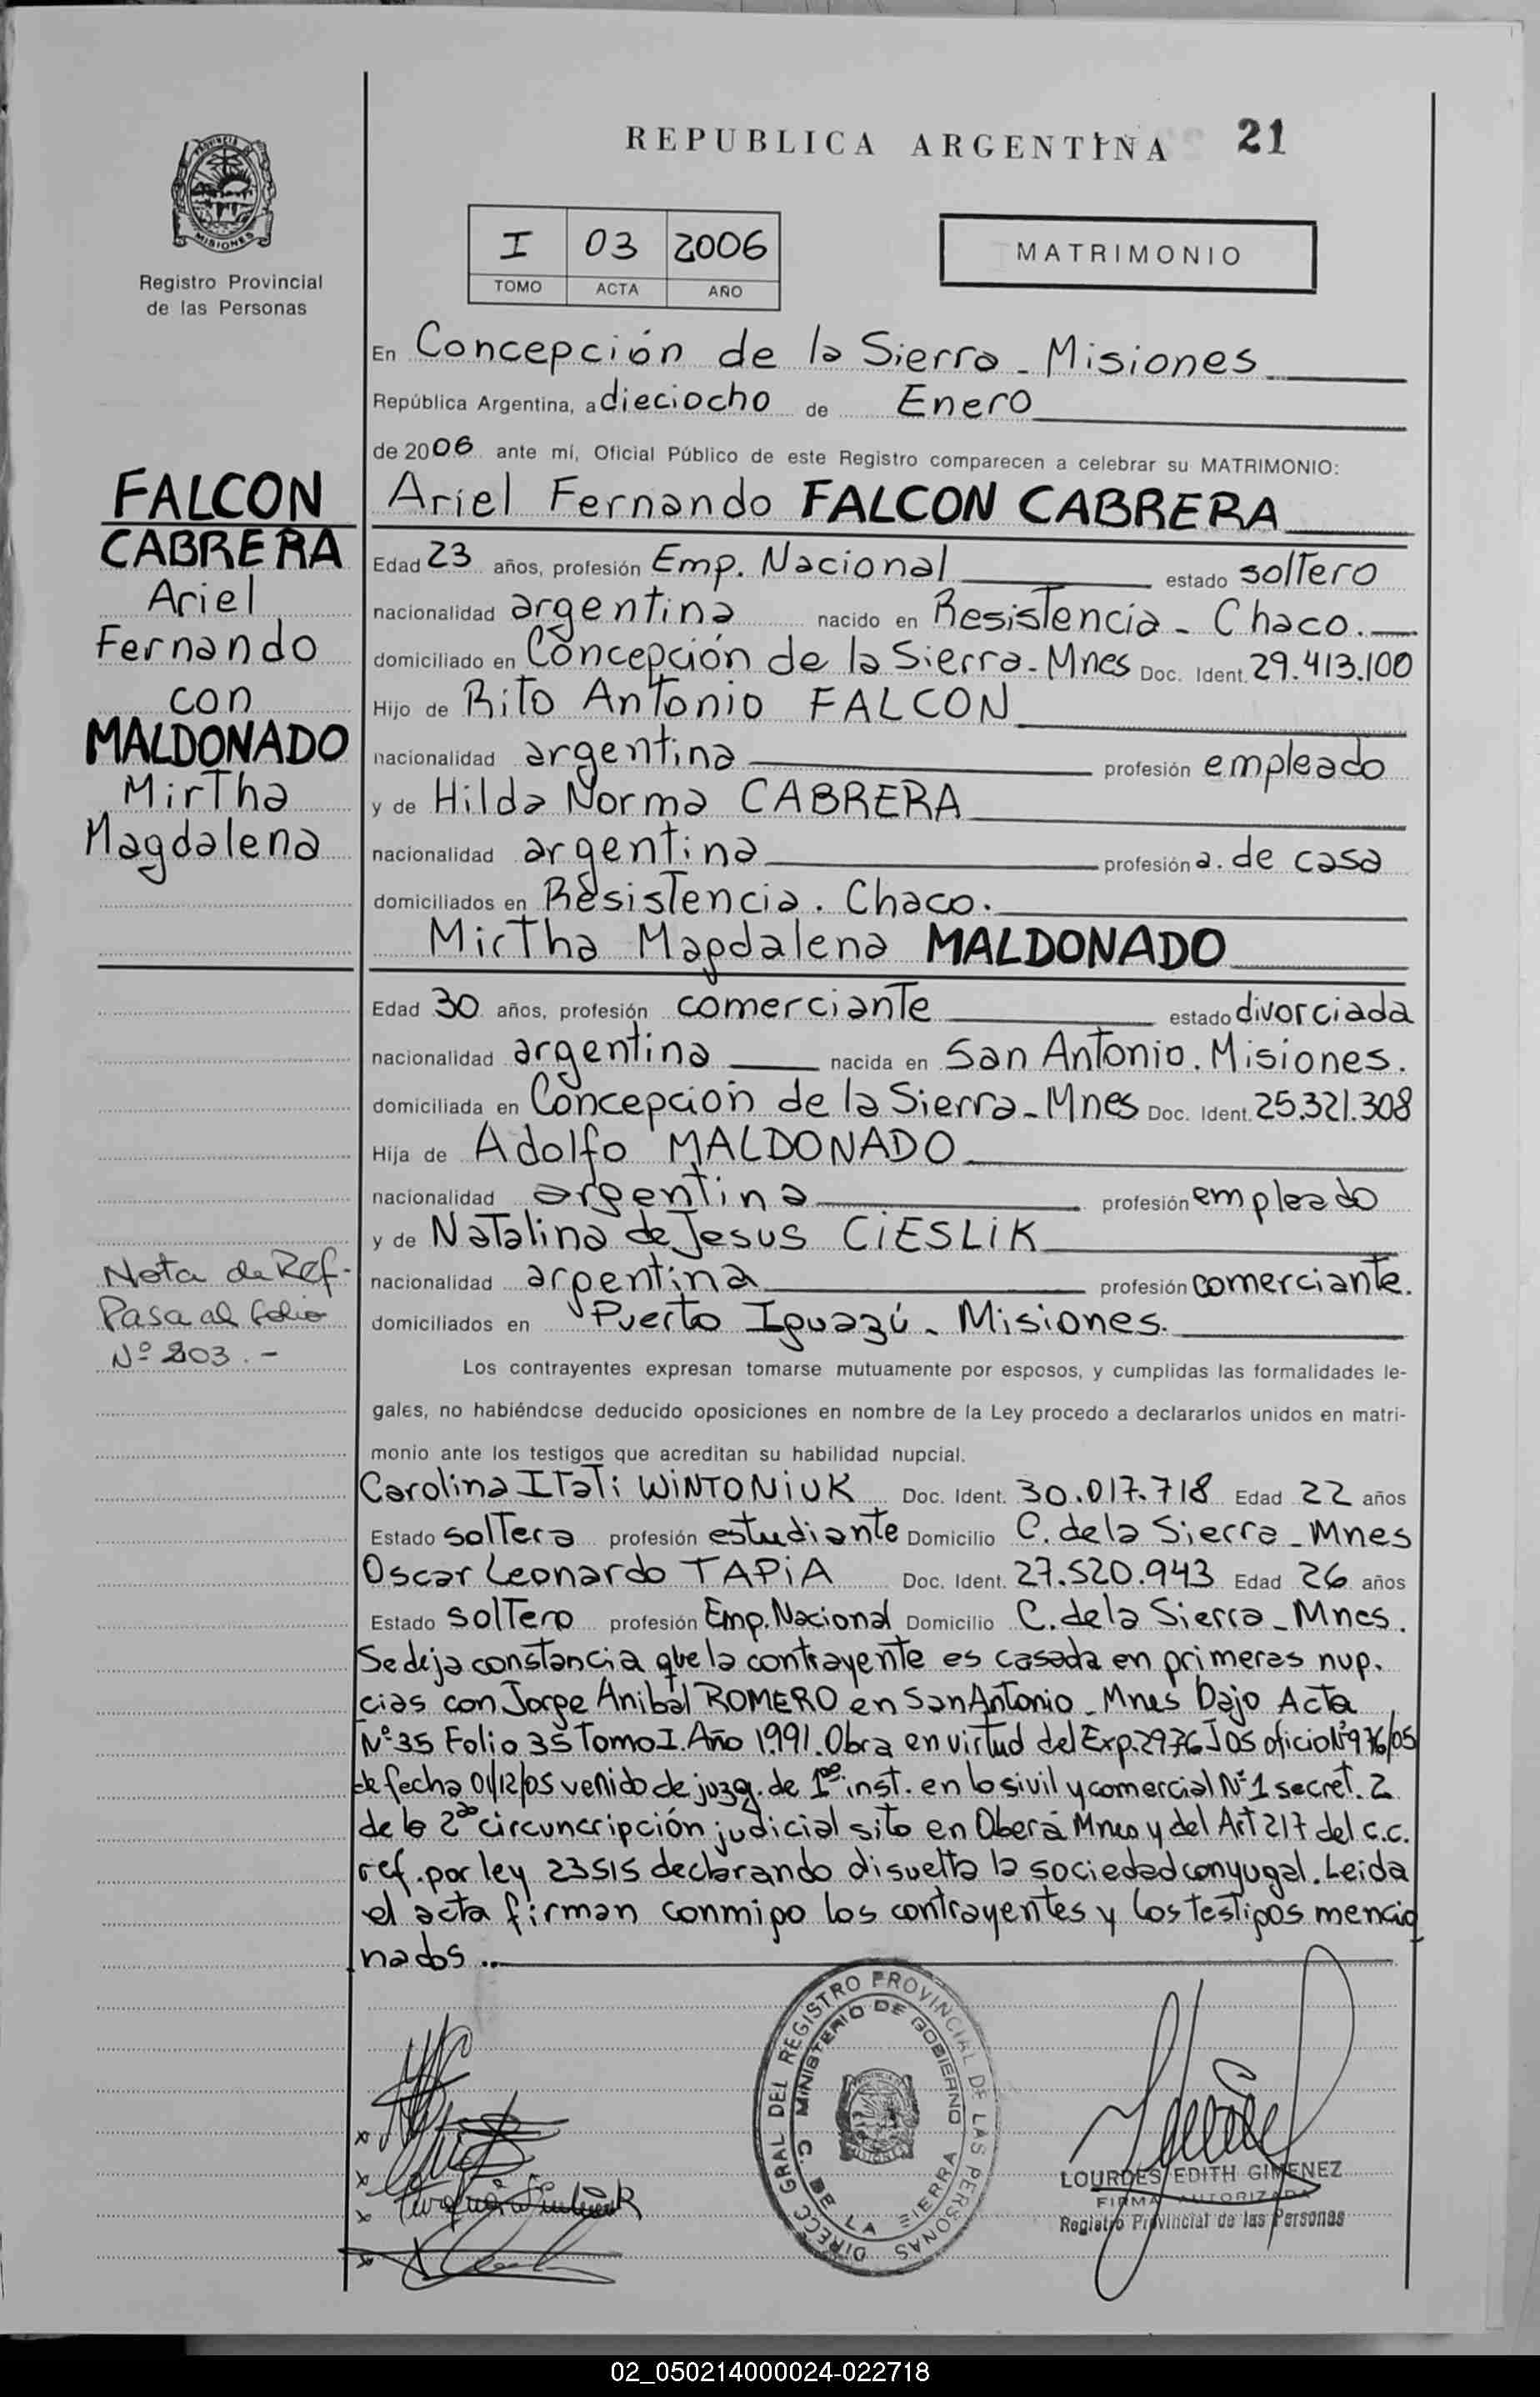 REPUBLICA ARGENTINA 21
PROVINCIA DE
MISIONES
Registro Provincial
de las Personas
I 03 2006
TOMO ACTA AÑO
MATRIMONIO
En Concepción de la Sierra - Misiones
República Argentina, a dieciocho de Enero
de 2006 ante mí, Oficial Público de este Registro comparecen a celebrar su MATRIMONIO:
FALCON
CABRERA
Ariel
Fernando
con
MALDONADO
Mirtha
Magdalena
Ariel Fernando FALCON CABRERA
Edad 23 años, profesión Emp. Nacional estado soltero
nacionalidad argentina nacido en Resistencia - Chaco.
domiciliado en Concepción de la Sierra - Mnes Doc. Ident. 29.413.100
Hijo de Rito Antonio FALCON
nacionalidad argentina profesión empleado
y de Hilda Norma CABRERA
nacionalidad argentina profesión a. de casa
domiciliados en Resistencia. Chaco.
Mirtha Magdalena MALDONADO
Edad 30 años, profesión comerciante estado divorciada
nacionalidad argentina nacida en San Antonio. Misiones.
domiciliada en Concepción de la Sierra - Mnes Doc. Ident. 25.321.308
Hija de Adolfo MALDONADO
nacionalidad argentina profesión empleado
y de Natalina de Jesus CIESLIK
nacionalidad argentina profesión comerciante.
domiciliados en Puerto Iguazú - Misiones.
Nota de Ref-
Pasa al folio
Nº 203.-
Los contrayentes expresan tomarse mutuamente por esposos, y cumplidas las formalidades le-
gales, no habiéndose deducido oposiciones en nombre de la Ley procedo a declararlos unidos en matri-
monio ante los testigos que acreditan su habilidad nupcial.
Carolina Itati WINTONIUK Doc. Ident. 30.017.718 Edad 22 años
Estado soltera profesión estudiante Domicilio C. de la Sierra - Mnes
Oscar Leonardo TAPIA Doc. Ident. 27.520.943 Edad 26 años
Estado soltero profesión Emp. Nacional Domicilio C. de la Sierra - Mnes.
Se deja constancia que la contrayente es casada en primeras nup.
cias con Jorge Anibal ROMERO en San Antonio - Mnes bajo Acta
Nº 35 Folio 35 Tomo I. Año 1991. Obra en virtud del Exp. 2976 J 05 oficio Nº 976/05
de fecha 01/12/05 venido de juzg. de 1ra inst. en lo sivil y comercial Nº 1 secret. 2
de la 2da circuncripción judicial sito en Oberá Mnes y del Art 217 del c.c.
ref. por ley 23515 declarando disuelta la sociedad conyugal. Leida
el acta firman conmigo los contrayentes y los testigos mencio
nados..
DIRECC GRAL DEL REGISTRO PROVINCIAL DE LAS PERSONAS
MINISTERIO DE GOBIERNO
C. DE LA SIERRA
LOURDES EDITH GIMENEZ
FIRMA AUTORIZADA
Registro Provincial de las Personas
02_050214000024-022718